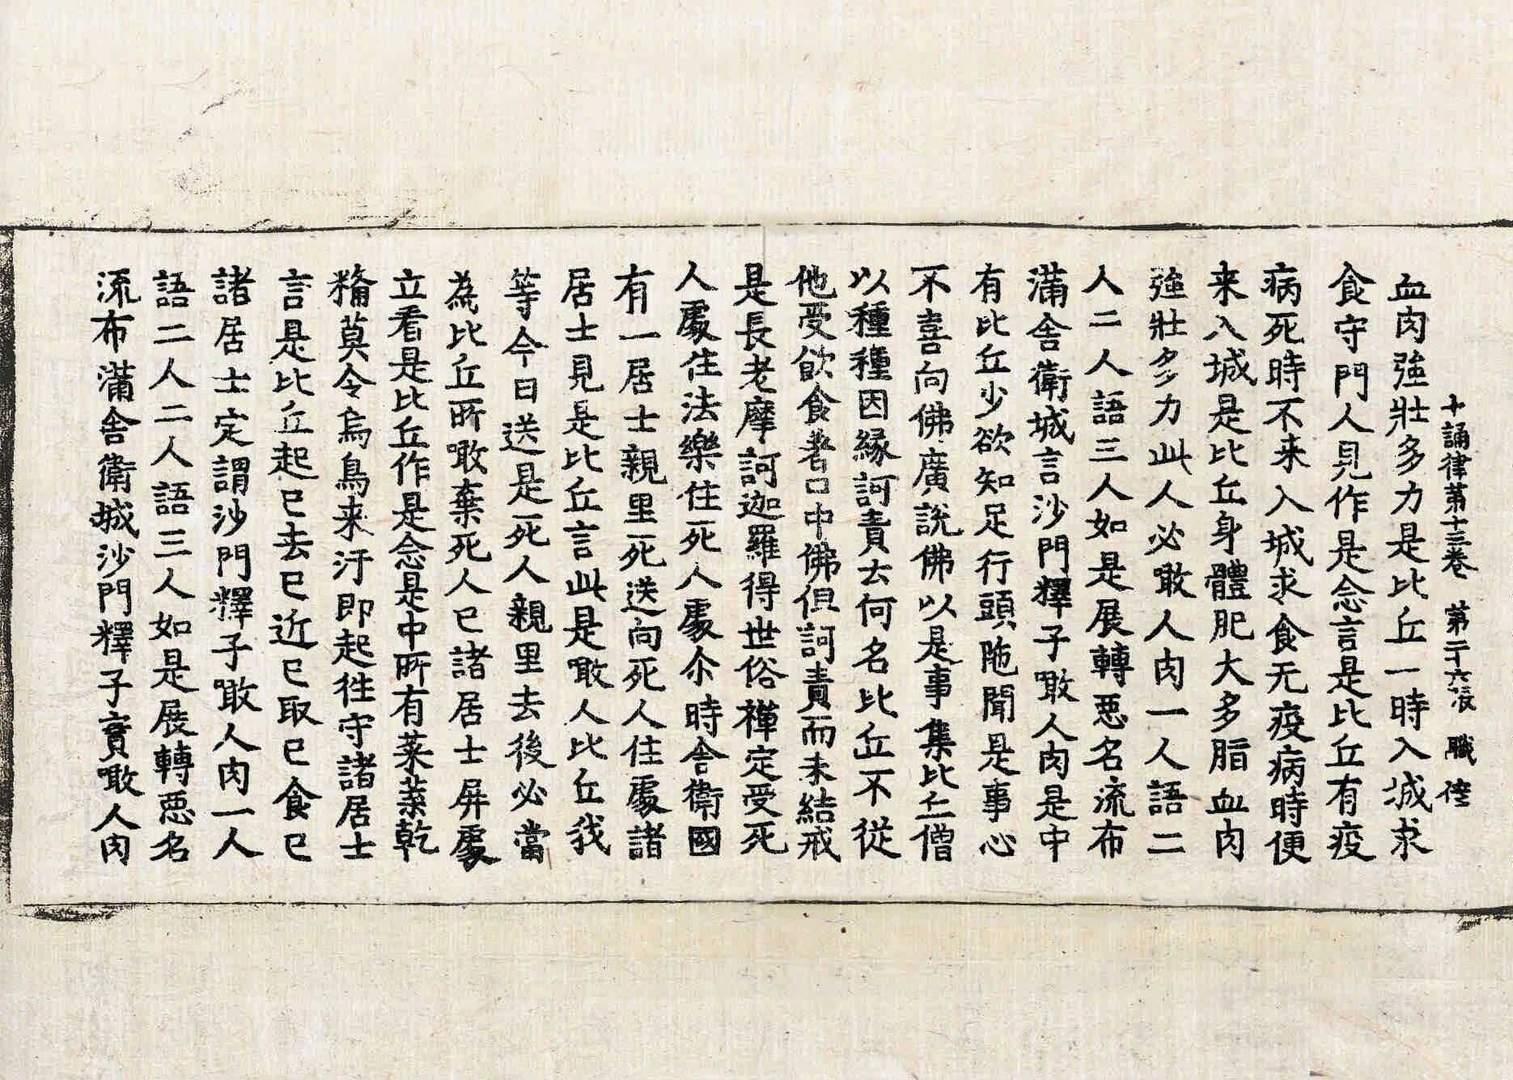 十誦律第十三卷 第二十六張 職 控
血肉強壯多力是比丘一時入城求
食守門人見作是念言是比丘有疫
病死時不来入城求食无疫病時便
来入城是比丘身體肥大多脂血肉
強壯多力此人必噉人肉一人語二
人二人語三人如是展轉惡名流布
滿舍衛城言沙門釋子噉人肉是中
有比丘少欲知足行頭陁聞是事心
不喜向佛廣說佛以是事集比丘僧
以種種因緣訶責云何名比丘不從
他受飲食著口中佛但訶責而未結戒
是長老摩訶迦羅得世俗禪定受死
人處住法樂住死人處尒時舍衛國
有一居士親里死送向死人住處諸
居士見是比丘言此是噉人比丘我
等今日送是死人親里去後必當
為比丘所噉棄死人已諸居士屏處
立看是比丘作是念是中所有菜蓡乾
糒莫令烏鳥来汙即起往守諸居士
言是比丘起已去已近已取已食已
諸居士定謂沙門釋子噉人肉一人
語二人二人語三人如是展轉惡名
流布滿舍衛城沙門釋子實噉人肉